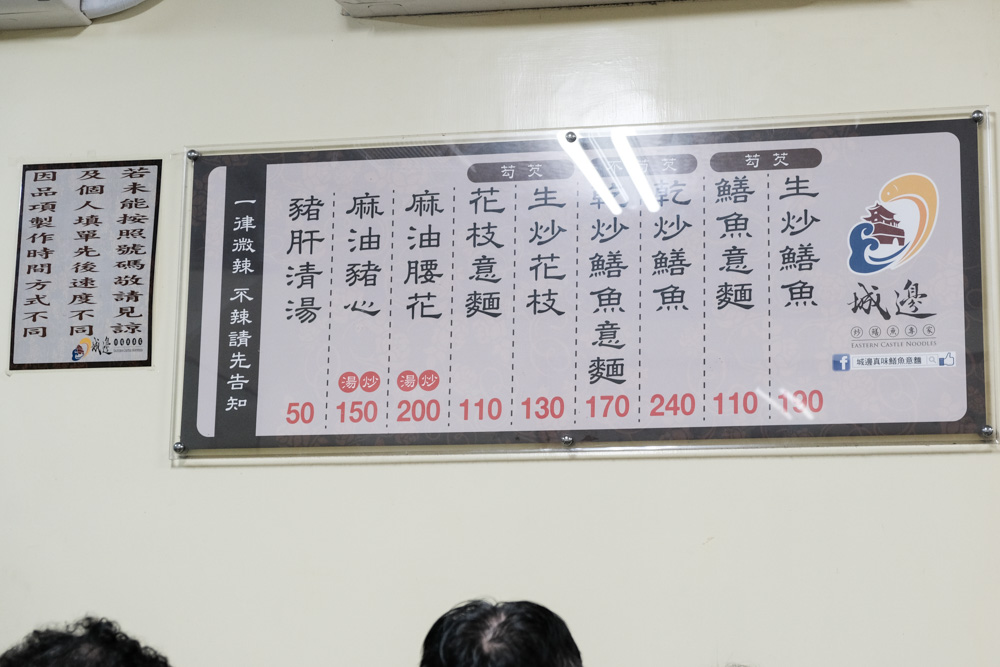 若未能按照號碼敬請見諒
及個人填單先後速度不同
因品項製作時間方式不同
城邊
芶芡
生炒鱔魚
130
鱔魚意麵
110
芶芡
乾炒鱔魚
240
乾炒鱔魚意麵
170
芶芡
生炒花枝
130
花枝意麵
110
麻油腰花
湯 炒
200
麻油豬心
湯 炒
150
豬肝清湯
50
一律微辣 不辣請先告知
城邊
炒鱔魚專家
EASTERN CASTLE NOODLES
城邊真味鱔魚意麵